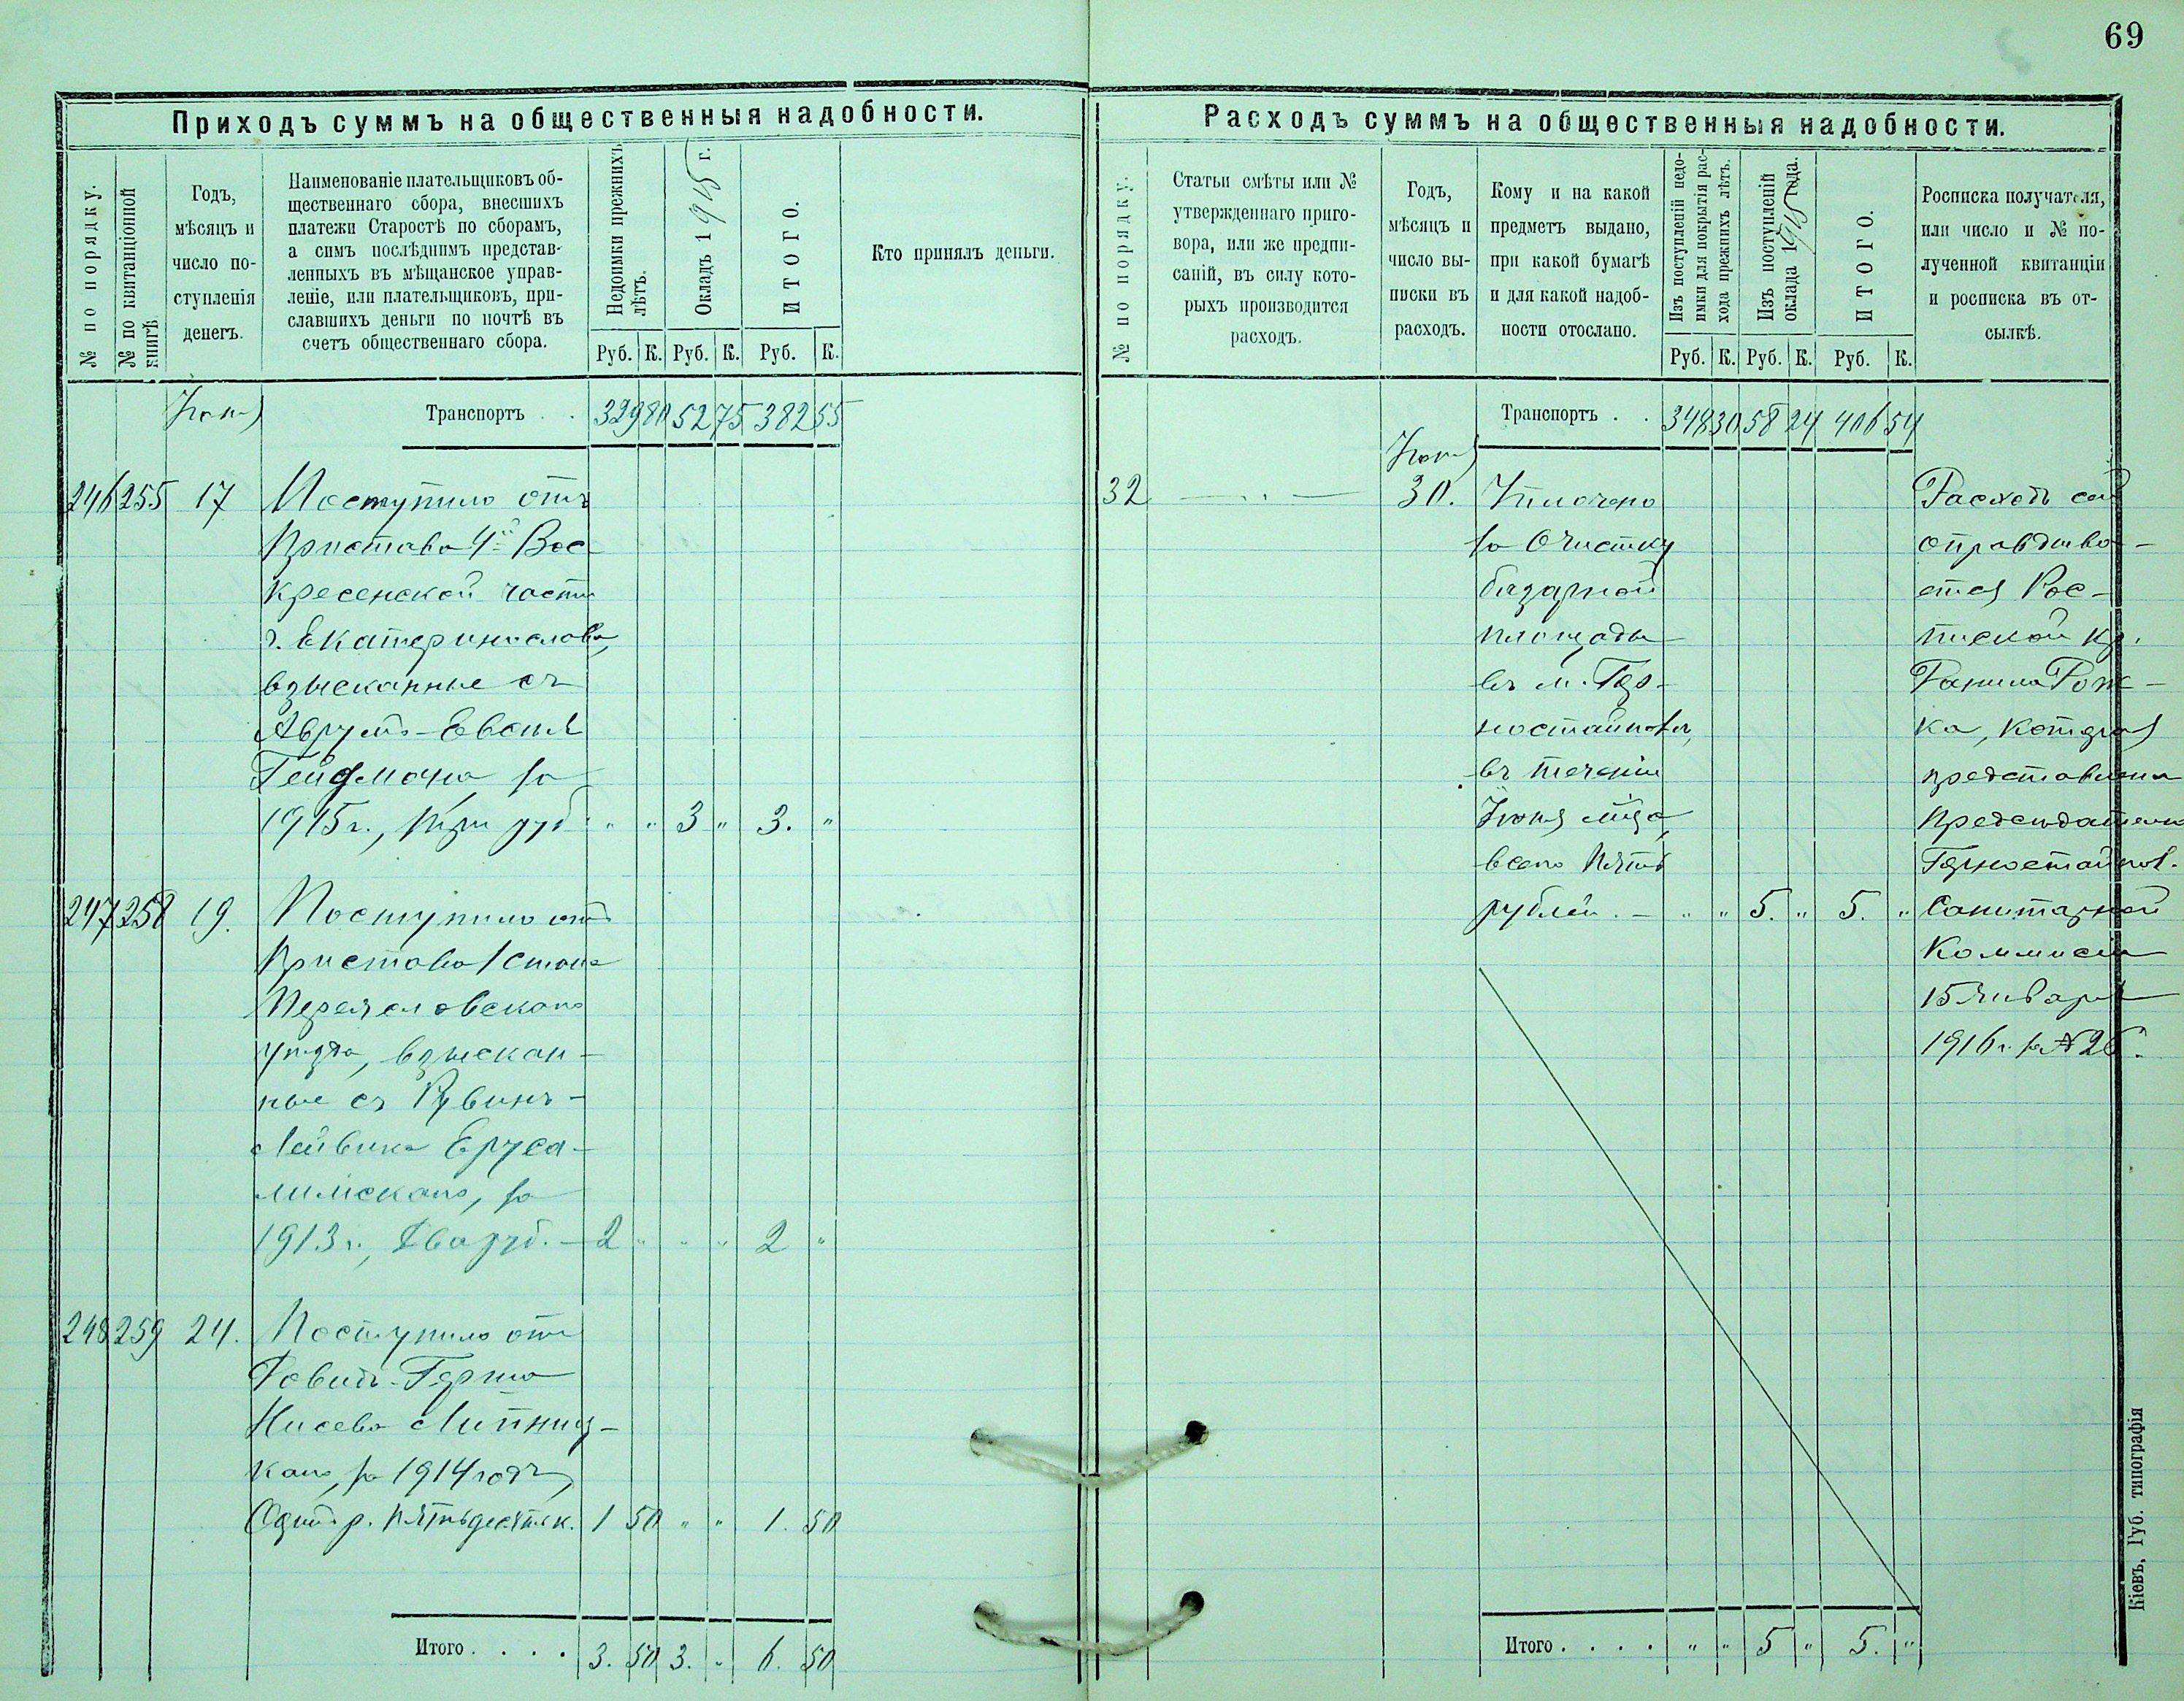 69
Приходъ суммъ на общественныя надобности.
№ по порядку.
№ по квитанціонной
книгѣ
Годъ,
мѣсяцъ и
число по-
ступленія
денегъ.
Наименованіе плательщиковъ об-
щественнаго сбора, внесшихъ
платежи Старостѣ по сборамъ,
а симъ послѣднимъ представ-
ленныхъ въ мѣщанское управ-
леніе, или плательщиковъ, при-
славшихъ деньги по почтѣ въ
счетъ общественнаго сбора.
Недоимки прежнихъ
лѣтъ.
Окладъ 1915 г.
ИТОГО.
Кто принялъ деньги.
Руб. К. Руб. К. Руб. К.
Транспортъ . . 329 80 52 75 382 55
246 255 17 Поступило отъ
Пристава 4й Вос
кресенской части
г. Екатеринослава,
взысканные съ
Аврумъ-Евсея
Гейфмана за
1915 г., три руб. " " 3 " 3. "
247 258 19. Поступило отъ
Пристава 1 стана
Переяславскаго
уѣзда, взыскан-
ные съ Рувинъ-
Лейвика Еруса-
лимскаго, за
1913 г., Два руб. - 2 " " " 2 "
248 259 24. Поступило отъ
Давидъ-Герша
Нисева Липниц-
каго, за 1914 годъ,
Одинъ р. пятьдесятъ к. 1 50 " " 1. 50
Итого . . . . 3. 50 3. " 6. 50
Расходъ суммъ на общественныя надобности.
№ по порядку.
Статьи смѣты или №
утвержденнаго приго-
вора, или же предпи-
саній, въ силу кото-
рыхъ производится
расходъ.
Годъ,
мѣсяцъ и
число вы-
писки въ
расходъ.
Кому и на какой
предметъ выдано,
при какой бумагѣ
и для какой надоб-
ности отослано.
Изъ поступленій недо-
имки для покрытія рас-
хода прежнихъ лѣтъ.
Изъ поступленій
оклада 1915 года.
ИТОГО.
Росписка получателя,
или число и № по-
лученной квитанціи
и росписка въ от-
сылкѣ.
Руб. К. Руб. К. Руб. К.
Транспортъ . . 348 30 58 24 406 54
32 30. Уплочено
за Очистку
базарной
площади
въ м. Гор-
ностайполѣ,
въ теченіи
Іюня м-ца,
всего пять
рублей. - " " 5. " 5. "
Расходъ сей
оправдыва-
ется Рос-
пиской кр.
Данила Рож-
ка, которая
представлена
Предсѣдателемъ
Горностайпол.
Санитарной
Коммисіи
15 Января
1916 г. за № 26.
Итого . . . . " " 5 " 5. "
Кіевъ, Губ. типографія